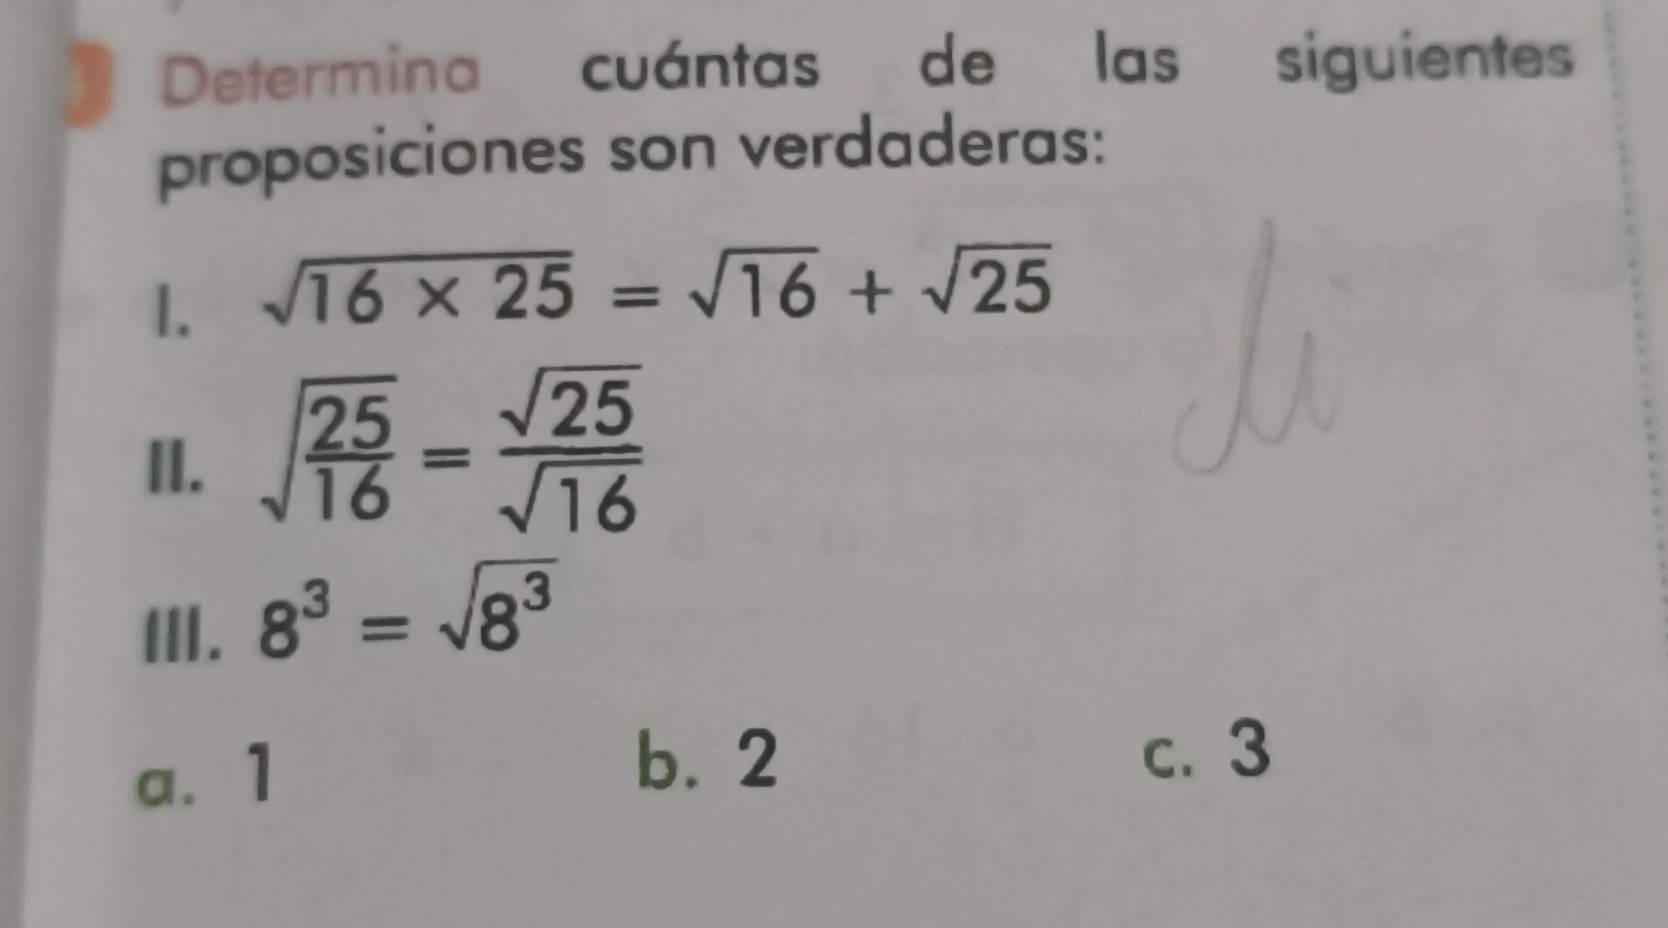 Determina cuántas de las siguientes
proposiciones son verdaderas:
I. √(16 × 25) = √16 + √25
II. √(25/16) = √25/√16
III. 8³ = √(8³)
a. 1 b. 2 c. 3